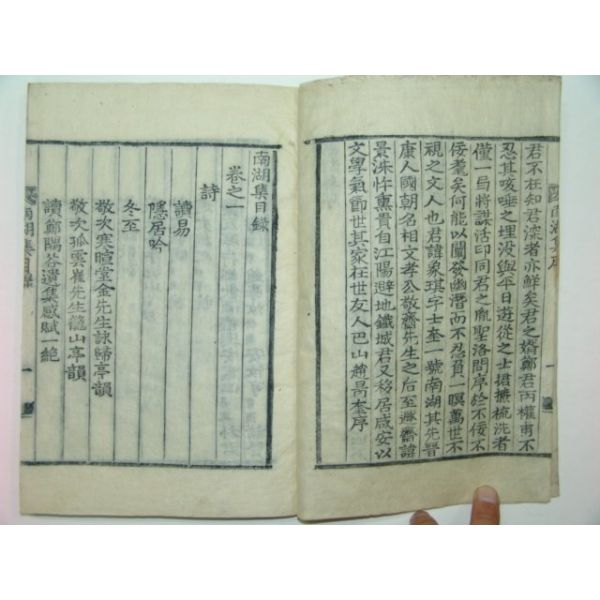 君不在知君深者亦鮮矣君之婿鄭君丙權甫不
忍其咳唾之埋沒與平日遊從之士捃摭梳洗者
僅一局將謀活印同君之龐聖洛問序於不佞不
佞耄矣何能以闡發幽潛而不忍負一瞑萬世不
視之文人也君諱象琪字士奎一號南湖其先晉
康人國朝名相文孝公敬齋先生之后至 齋諱
景洙忤熏貴自江陽避地鐵城君又移居咸安以
文學氣節世其家在世友人巴山趙昺奎序
南湖集序
一
南湖集目錄
卷之一
詩
讀易
隱居吟
冬至
敬次寒暄堂金先生詠歸亭韻
敬次孤雲崔先生籠山亭韻
讀鄭陽谷遺集感賦一絶
南湖集目錄
一